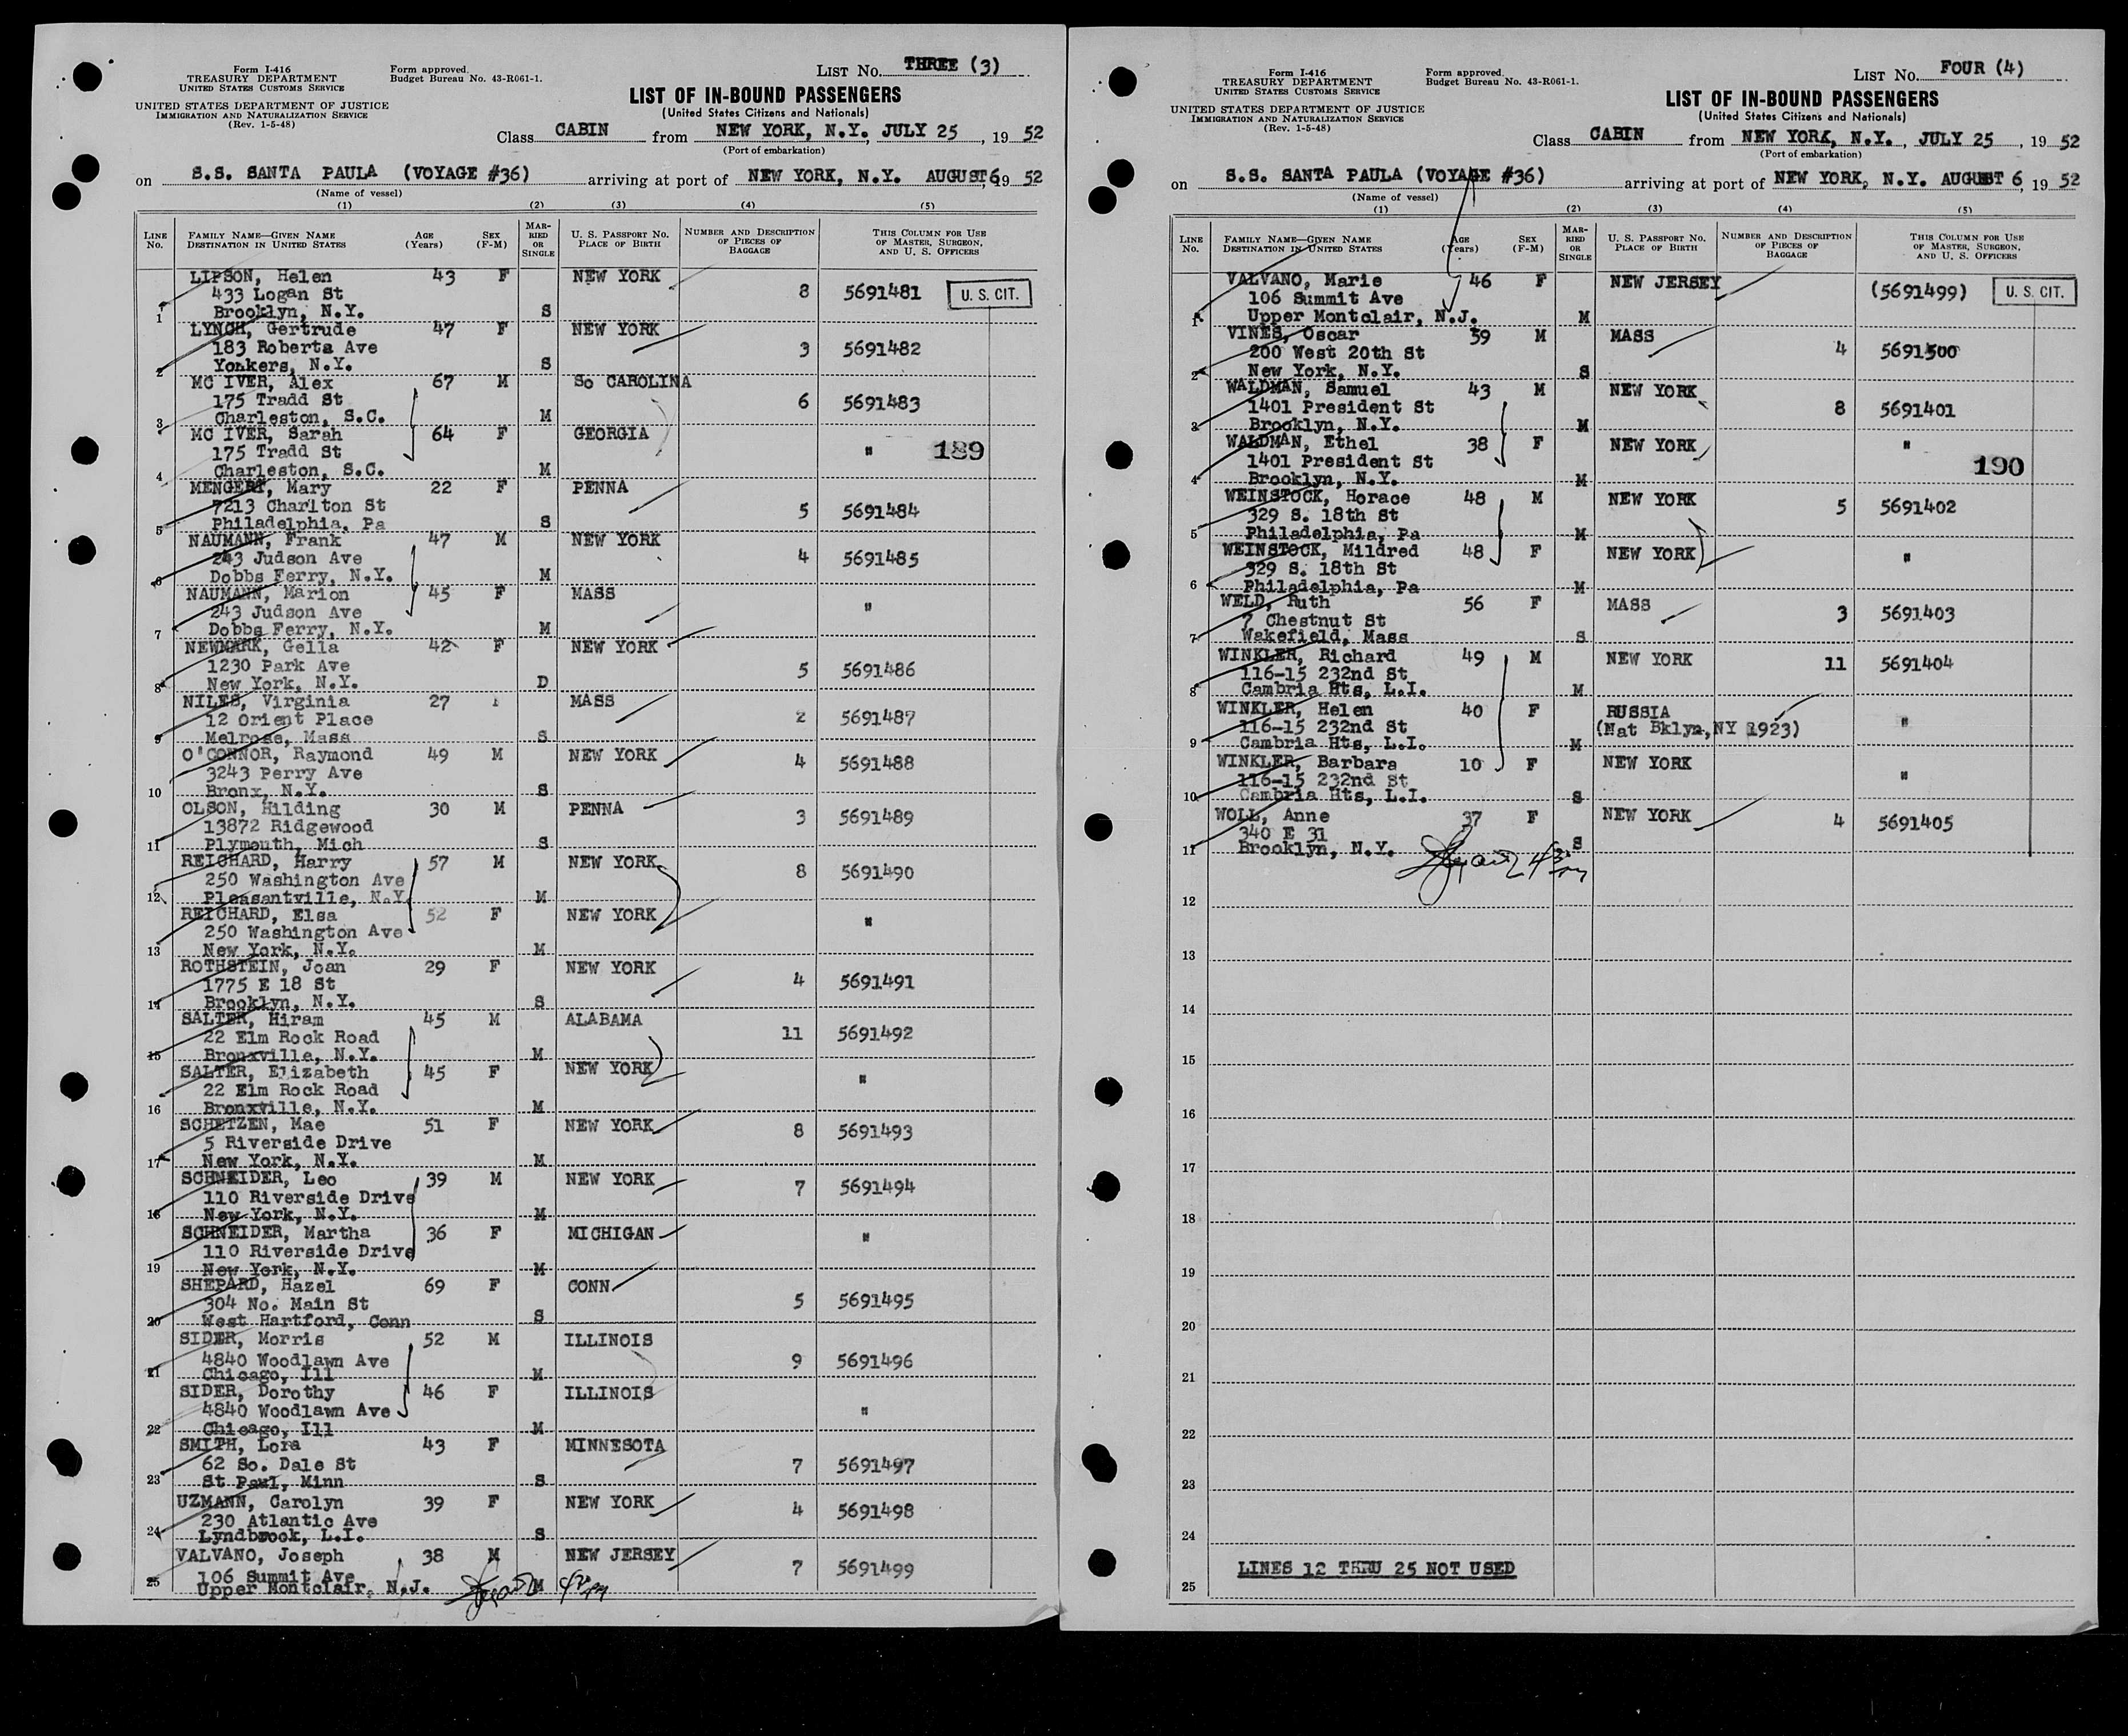 Form I-416
TREASURY DEPARTMENT
UNITED STATES CUSTOMS SERVICE
Form approved.
Budget Bureau No. 43-R061-1.
LIST No. THREE (3)
UNITED STATES DEPARTMENT OF JUSTICE
IMMIGRATION AND NATURALIZATION SERVICE
(Rev. 1-5-48)
LIST OF IN-BOUND PASSENGERS
(United States Citizens and Nationals)
Class CABIN from NEW YORK, N.Y. JULY 25, 19 52
(Port of embarkation)
on S.S. SANTA PAULA (VOYAGE #36) arriving at port of NEW YORK, N.Y. AUGUST 6, 19 52
(Name of vessel)
(1) (2) (3) (4) (5)
LINE No. FAMILY NAME—GIVEN NAME DESTINATION IN UNITED STATES AGE (Years) SEX (F-M) MARRIED OR SINGLE U. S. PASSPORT NO. PLACE OF BIRTH NUMBER AND DESCRIPTION OF PIECES OF BAGGAGE THIS COLUMN FOR USE OF MASTER, SURGEON, AND U. S. OFFICERS
LIPSON, Helen 43 F NEW YORK
433 Logan St 8 5691481 U. S. CIT.
1 Brooklyn, N.Y. S
LYNCH, Gertrude 47 F NEW YORK
183 Roberts Ave 3 5691482
2 Yonkers, N.Y. S
MC IVER, Alex 67 M So CAROLINA
175 Tradd St 6 5691483
3 Charleston, S.C. M
MC IVER, Sarah 64 F GEORGIA
175 Tradd St " 189
4 Charleston, S.C. M
MENGERT, Mary 22 F PENNA
7213 Charlton St 5 5691484
5 Philadelphia, Pa S
NAUMANN, Frank 47 M NEW YORK
243 Judson Ave 4 5691485
6 Dobbs Ferry, N.Y. M
NAUMANN, Marion 45 F MASS
243 Judson Ave "
7 Dobbs Ferry, N.Y. M
NEWMARK, Gella 42 F NEW YORK
1230 Park Ave 5 5691486
8 New York, N.Y. D
NILES, Virginia 27 MASS
12 Orient Place 2 5691487
9 Melrose, Mass S
O'CONNOR, Raymond 49 M NEW YORK
3243 Perry Ave 4 5691488
10 Bronx, N.Y. S
OLSON, Hilding 30 M PENNA
13872 Ridgewood 3 5691489
11 Plymouth, Mich S
REICHARD, Harry 57 M NEW YORK
250 Washington Ave 8 5691490
12 Pleasantville, N.Y. M
REICHARD, Elsa 52 F NEW YORK
250 Washington Ave "
13 New York, N.Y. M
ROTHSTEIN, Joan 29 F NEW YORK
1775 E 18 St 4 5691491
14 Brooklyn, N.Y. S
SALTER, Hiram 45 M ALABAMA
22 Elm Rock Road 11 5691492
15 Bronxville, N.Y. M
SALTER, Elizabeth 45 F NEW YORK
22 Elm Rock Road "
16 Bronxville, N.Y. M
SCHETZEN, Mae 51 F NEW YORK
5 Riverside Drive 8 5691493
17 New York, N.Y. M
SCHNEIDER, Leo 39 M NEW YORK
110 Riverside Drive 7 5691494
18 New York, N.Y. M
SCHNEIDER, Martha 36 F MICHIGAN
110 Riverside Drive "
19 New York, N.Y. M
SHEPARD, Hazel 69 F CONN
304 No. Main St 5 5691495
20 West Hartford, Conn S
SIDER, Morris 52 M ILLINOIS
4840 Woodlawn Ave 9 5691496
21 Chicago, Ill M
SIDER, Dorothy 46 F ILLINOIS
4840 Woodlawn Ave "
22 Chicago, Ill M
SMITH, Lora 43 F MINNESOTA
62 So. Dale St 7 5691497
23 St Paul, Minn S
UZMANN, Carolyn 39 F NEW YORK
230 Atlantic Ave 4 5691498
24 Lyndbrook, L.I. S
VALVANO, Joseph 38 M NEW JERSEY
106 Summit Ave 7 5691499
25 Upper Montclair, N.J. M
Form I-416
TREASURY DEPARTMENT
UNITED STATES CUSTOMS SERVICE
Form approved.
Budget Bureau No. 43-R061-1.
LIST No. FOUR (4)
UNITED STATES DEPARTMENT OF JUSTICE
IMMIGRATION AND NATURALIZATION SERVICE
(Rev. 1-5-48)
LIST OF IN-BOUND PASSENGERS
(United States Citizens and Nationals)
Class CABIN from NEW YORK, N.Y., JULY 25, 19 52
(Port of embarkation)
on S.S. SANTA PAULA (VOYAGE #36) arriving at port of NEW YORK, N.Y. AUGUST 6, 19 52
(Name of vessel)
(1) (2) (3) (4) (5)
LINE No. FAMILY NAME—GIVEN NAME DESTINATION IN UNITED STATES AGE (Years) SEX (F-M) MARRIED OR SINGLE U. S. PASSPORT NO. PLACE OF BIRTH NUMBER AND DESCRIPTION OF PIECES OF BAGGAGE THIS COLUMN FOR USE OF MASTER, SURGEON, AND U. S. OFFICERS
VALVANO, Marie 46 F NEW JERSEY
106 Summit Ave (5691499) U. S. CIT.
1 Upper Montclair, N.J. M
VINES, Oscar 59 M MASS
200 West 20th St 4 5691500
2 New York, N.Y. S
WALDMAN, Samuel 43 M NEW YORK
1401 President St 8 5691401
3 Brooklyn, N.Y. M
WALDMAN, Ethel 38 F NEW YORK "
1401 President St 190
4 Brooklyn, N.Y. M
WEINSTOCK, Horace 48 M NEW YORK 5 5691402
329 S. 18th St
5 Philadelphia, Pa M
WEINSTOCK, Mildred 48 F NEW YORK "
329 S. 18th St
6 Philadelphia, Pa M
WELD, Ruth 56 F MASS
7 Chestnut St 3 5691403
7 Wakefield, Mass S
WINKLER, Richard 49 M NEW YORK 11 5691404
116-15 232nd St
8 Cambria Hts, L.I. M
WINKLER, Helen 40 F RUSSIA
116-15 232nd St (Nat Bklyn,NY 1923) "
9 Cambria Hts, L.I. M
WINKLER, Barbara 10 F NEW YORK
116-15 232nd St "
10 Cambria Hts, L.I. S
WOLL, Anne 37 F NEW YORK 4 5691405
340 E 31
11 Brooklyn, N.Y. S
12
13
14
15
16
17
18
19
20
21
22
23
24
LINES 12 THRU 25 NOT USED
25